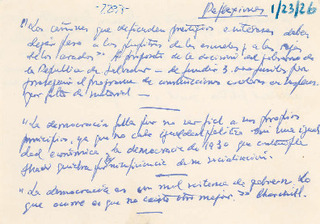 -7895-
Reflexiones 1/23/26
"Los cañones que defienden prestigios e intereses deben
dejar paso a los pupitres de las escuelas y a las rejas
de los arados" A propósito de la decisión del gobierno de
la República de Salvador - de fundir 3 una fuente por
proseguir el programa de construcciones escolares en
por falta de material -
"La democracia falla por no ser fiel a sus propios
principios, ya que no cabe igualdad política sin una igual
dad económica". La democracia de 1930 que
quiebra de su socialización.
"La democracia es un mal sistema de gobierno. Lo
que ocurre es que no existe otro mejor." Churchill.